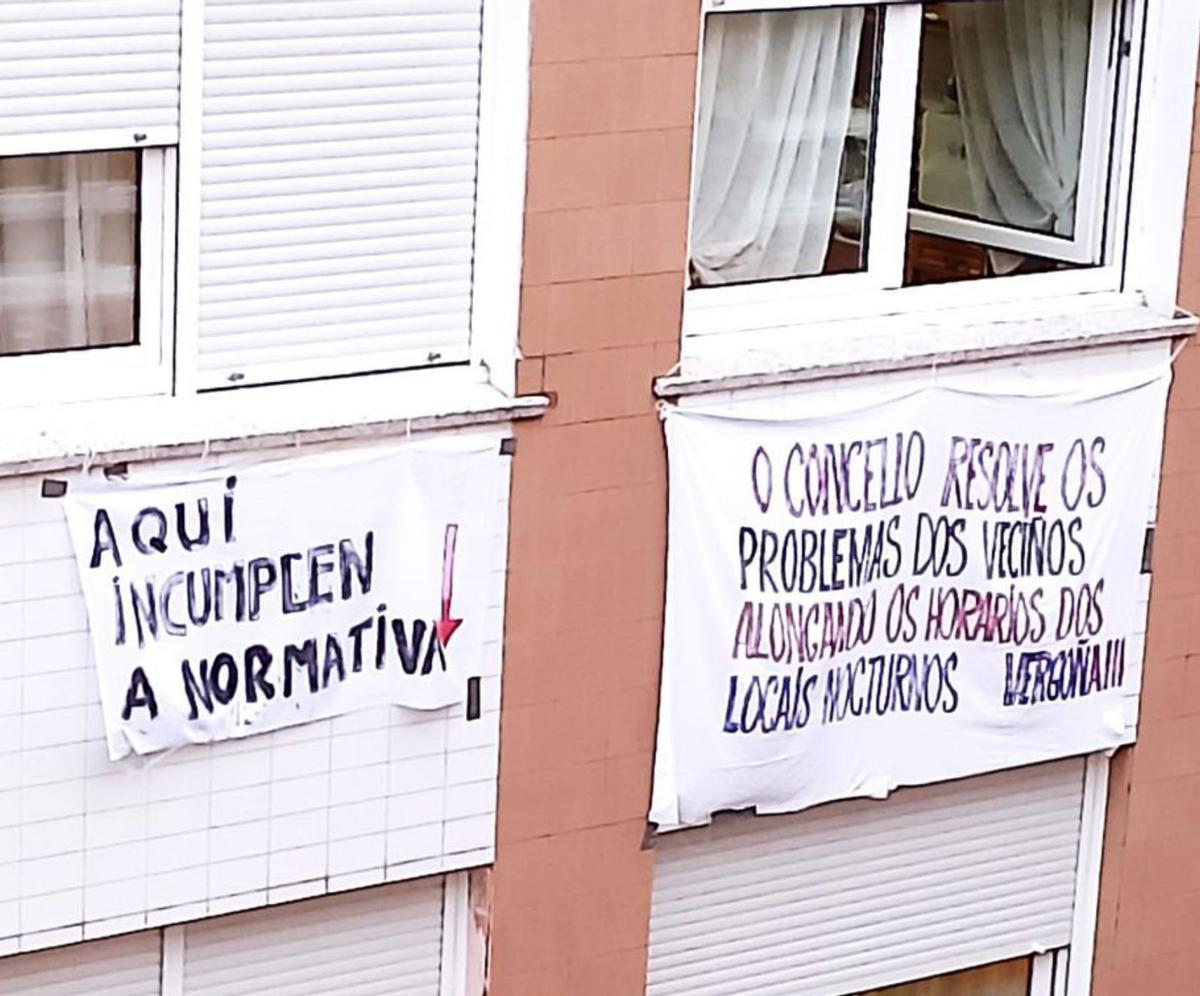 AQUÍ
INCUMPLEN
A NORMATIVA
O CONCELLO RESOLVE OS
PROBLEMAS DOS VECIÑOS
ALONGANDO OS HORARIOS DOS
LOCAIS NOCTURNOS VERGOÑA!!!